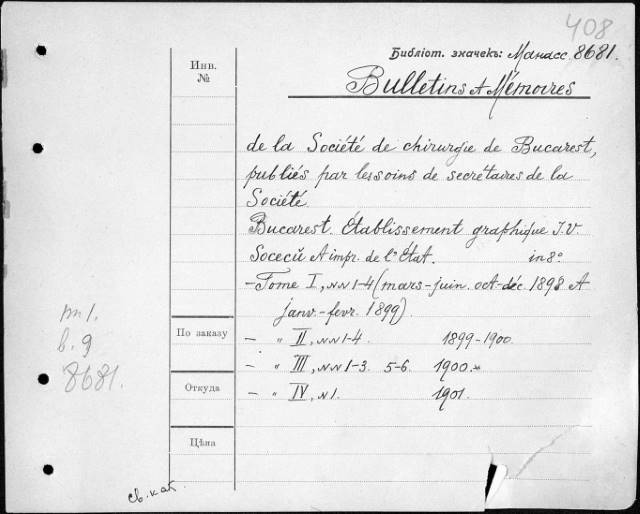 408
Библіот. значекъ: Манасс. 8681.
Инв.
№
Bulletins et Mémoires
de la Société de chirurgie de Bucarest,
publiés par les soins de secrétaires de la
Société.
Bucarest. Établissement graphique J.V.
Socecŭ et impr. de l'État. in 8°
– Tome I, NN 1-4 (mars-juin. oct-déc. 1898 et
janv.-fevr. 1899).
– " II, NN 1-4. 1899-1900.
– " III, NN 1-3. 5-6. 1900.
– " IV, N 1. 1901.
m 1.
в. 9
8681.
По заказу
Откуда
Цѣна
св. кат.